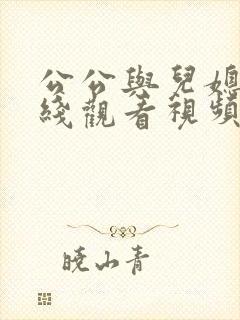 公公與兒媳
綫觀看視頻
曉山青